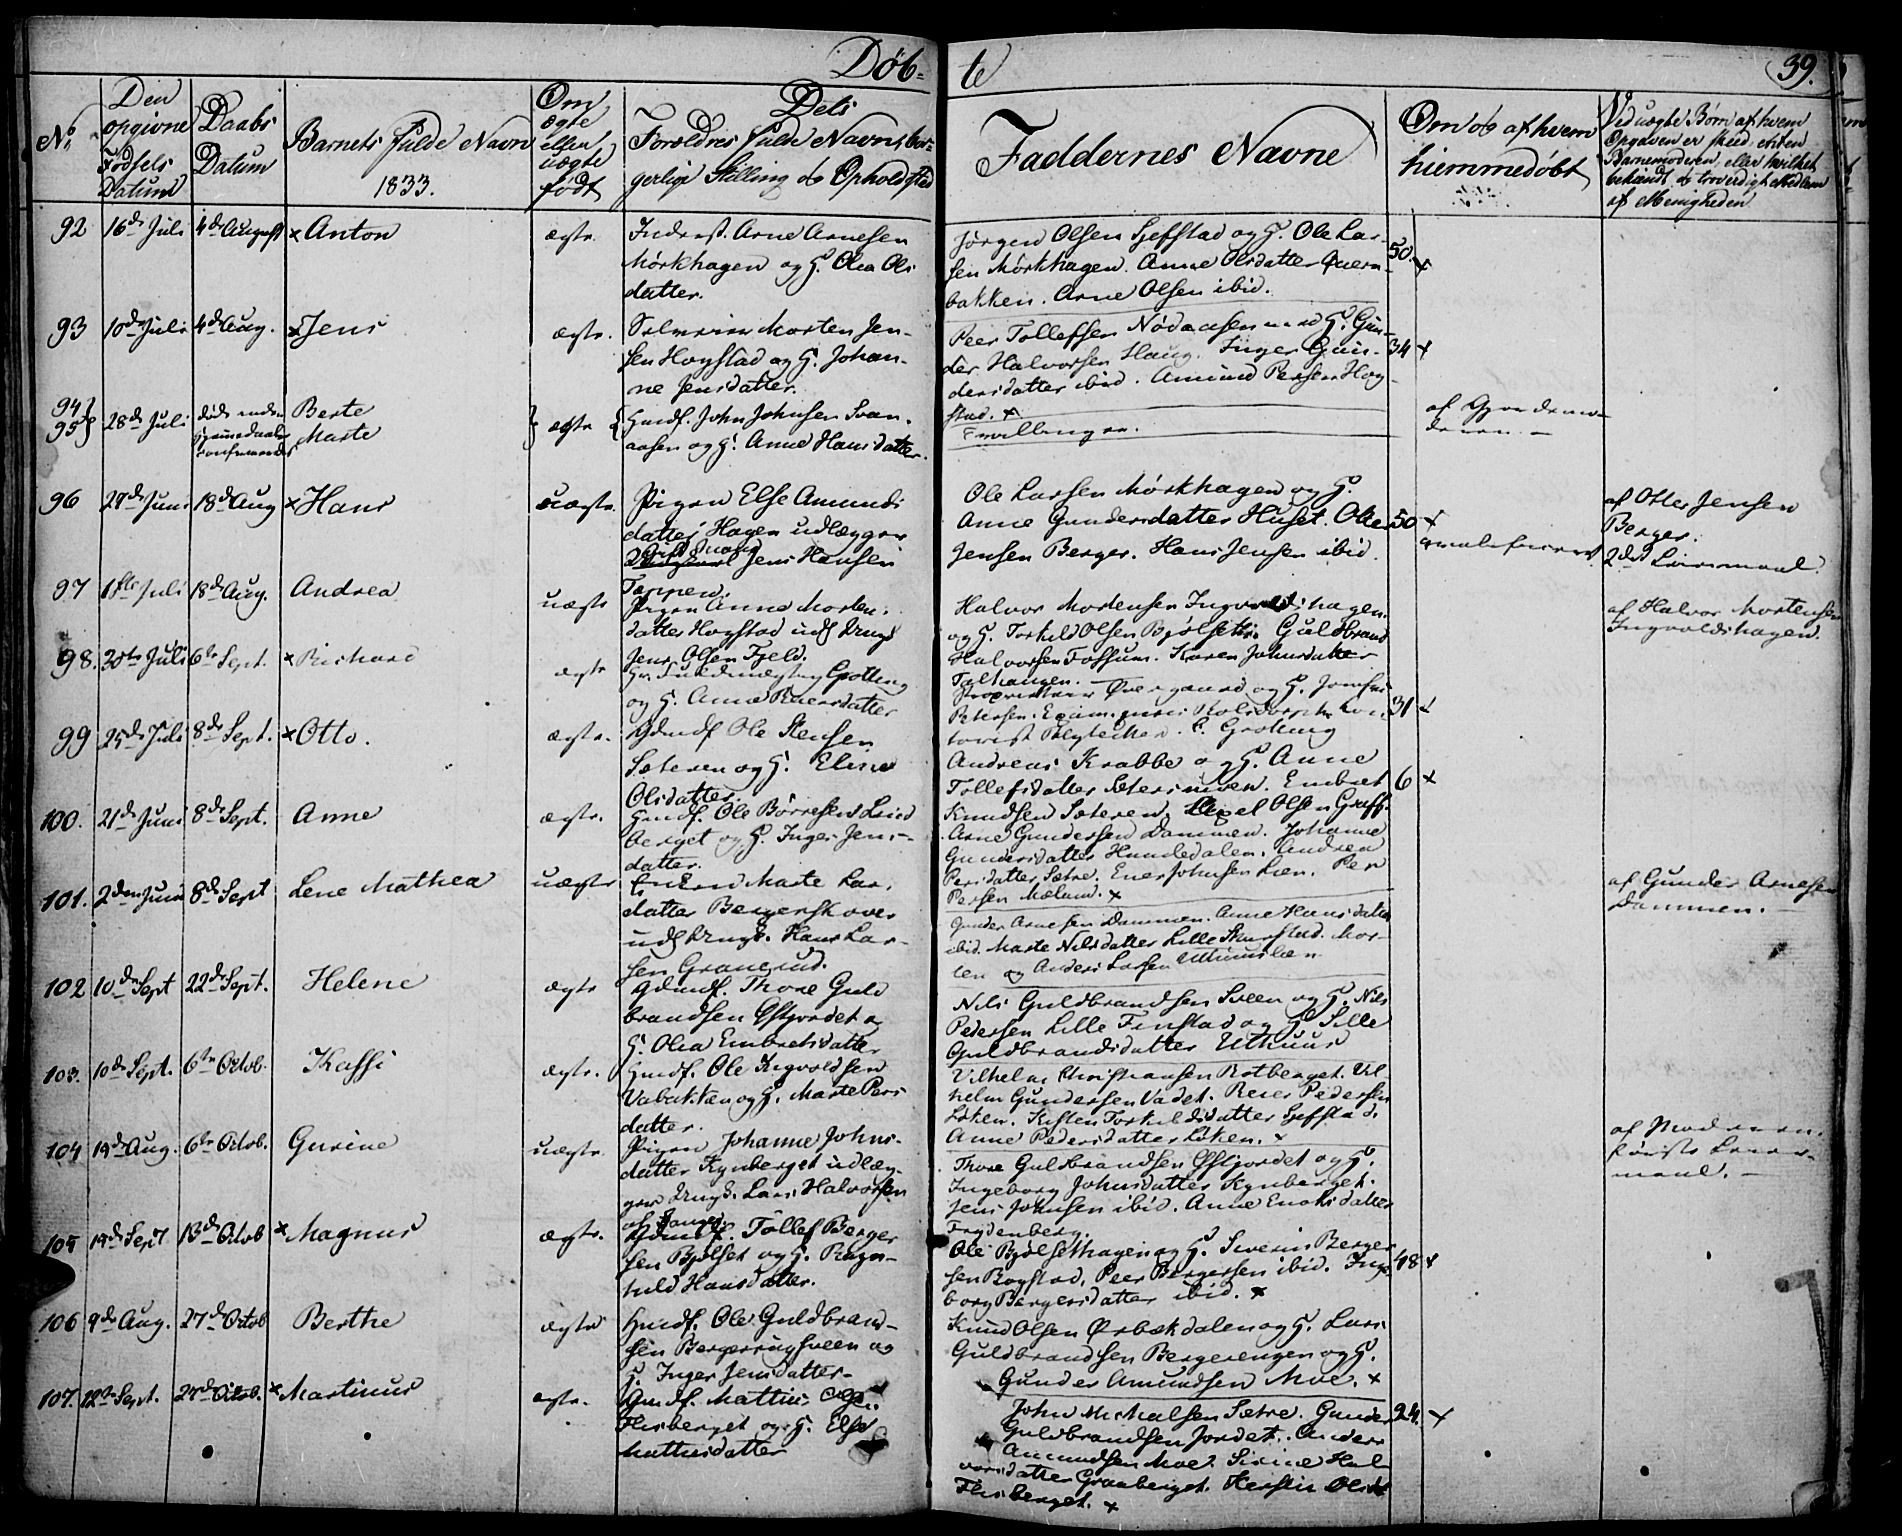 Døb-
te
39.
No
Den opgivne Fødsels Datum
Daabs Datum
Barnets fulde Navn
1833.
Om ægte eller uægte født
Dets Forældres fulde Navn, borgerlige Stilling og Opholdsted
Faddernes Navne
Om og af hvem hiemmedøbt
Ved uægte Børn af hvem Opgaven er skeed, enten Barnemoderen, eller hvilket bekiendt og troværdigt Medlem af Menigheden
92 16de Juli 4de August × Anton ægte
Inderst. Arne Arnesen
Mørkhagen og H. Olea Ols
datter.
Jørgen Olsen Sjefstad og H. Ole Lar-
sen Mørkhagen. Anne Olsdatter Quern-
bakken. Arne Olsen ibid.
50. ×
93 10de Juli 4de Aug. × Jens ægte.
Morten Jen-
sen Hogstad og H. Johan-
ne Jensdatter.
Peer Tollefsen Nødaasen med H. Gun-
der Halvorsen Haug. Inger Gun-
dersdatter ibid. Amund Persen Hog-
stad. ×
34 ×
94 95 28de Juli døde uden
Berte
Marte
ægte
Huusf. John Johnsen Svan-
aasen og H. Anne Hansdatter.
Tvillinger.
af Gjordemo-
deren. –
96 29de Juni 18de Aug × Hans uægte
Pigen Else Amunds
datter Hagen udlægger
Jens Hansen
Tappen.
Ole Larsen Mørkhagen og H.
Anne Gundersdatter Huset. Ole
Jensen Berger. Hans Jensen ibid.
50 ×
af Otter Jensen
Berger.
2det Leiermaal.
97 1ste Juli 18de Aug. Andrea uægte
Pigen Anne Morten-
datter Hogstad udl. Ungk
Jens Olsen Fjeld.
Halvor Mortensen Ingvoldshagen
og H. Torkild Olsen Bjølseth. Guldbrand
Halvorsen Fossum. Karen Johnsdatter
af Halvor Mortensen
Ingvoldshagen.
98. 20de Juli 6te Sept. × Richard ægte
Hr. Fuldmægtig Grotting
og H. Anne
Proprietær Øvergaard og H. Jomfru
Petersen. Exam. juris
31 ×
99 25de Juli 8de Sept. × Otto. ægte.
Gdmdf Ole Stensen
Sæteren og H. Eline
Olsdatter.
Andreas Krabbe og H. Anne
Tollefsdatter. Embret
Knudsen Sæteren. Axel Olsen Graff.
6 ×
100. 21de Juni 8de Sept. Anne ægte.
Huusf. Ole Børresen
berget og H. Inger Jens-
datter.
Arne Gundersen Dammen. Johanne
Gundersdatter Hemledalen. Andrea
Persdatter Sætre. Ener Johnsen Lien. Per
Persen Mælum. ×
101. 2den Juni 8de Sept Lene Mathea uægte
Enken Marte Lar-
datter Bergerskoven
udl Ungk. Hans Lar-
sen Granerud.
Gunder Arnesen Dammen. Anne Hansdatter
ibid. Marte Nilsdatter Lille Skurstad. Mor-
ten og Anders Larsen
af Gunder Arnesen
Dammen. –
102 10de Sept 22de Sept. Helene ægte
Gdmdf. Thore Guld
brandsen Østjordet og
H. Olea Embretsdatter
Nils Guldbrandsen Sveen og H. Nils
Pedersen Lille Finstad og H. Sille
Guldbrandsdatter Uthuus
103. 10de Sept. 6te Octob. Kassi ægte.
Huusf. Ole Ingvoldsen
Vabakken og H. Marte Pers
datter.
Vilhelm Christiansen Rotberget. Vil-
helm Gundersen Vadet. Reer Pedersen
Løken. Kisten Torkildsdatter Sjefstad.
Anne Pedersdatter Løken. ×
104 19de Aug. 6te Octob. Gurine uægte
Pigen Johanne Johns-
datter Kynberget udlæg-
ger Ungk. Lars Halvorsen
Thore Guldbrandsen Østjordet og H.
Ingeborg Johnsdatter Kynberget.
Jens Johnsen ibid. Anne Enoksdatter
Frydenberg.
af Moderen.
første Leier-
maal. –
105 19de Sept 13de Octob × Magnus ægte.
Gdmdf. Tollef Berger
sen Bjølset og H. Ragn-
hild Hansdatter.
Ole Bjølsethagen og H. Severin Berger
sen Rogstad. Peer Bergersen ibid. Inge-
borg Bergersdatter ibid. ×
48 ×
106 9de Aug. 27de Octob Berthe ægte
Huusf. Ole Guldbrand-
sen Bergerengsveen og
H. Inger Jensdatter-
Knud Olsen Ørbækdalen og H. Lars
Guldbrandsen Bergerengen og H.
Gunder Amundsen Moe. ×
107. 12te Sept. 27de Octob. × Martinus ægte.
Gmdf. Mattis Olsen
Flisberget og H. Else
Mattisdatter
John Michalsen Sætre. Gunder
Guldbrandsen Jordet. Anders
Amundsen Moe. Sirine Hal
vorsdatter Graaberget. Kersti Olsd.
Flisberget. ×
24. ×